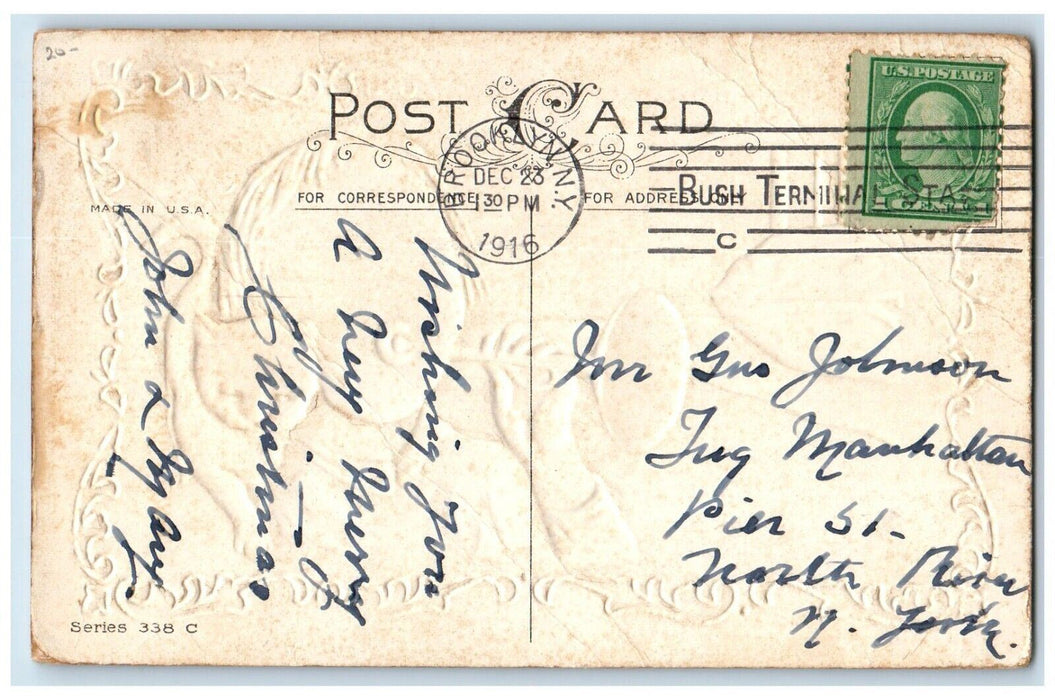 20-
POST CARD
BROOKLYN N.Y.
DEC 23
1 30 PM
1916
BUSH TERMINAL STA.
C
U.S. POSTAGE
FOR CORRESPONDENCE
FOR ADDRESS ONLY
MADE IN U.S.A.
Wishing You
a Very Merry
Christmas
John & Mary.
Mr Gus Johnson
Tug Manhattan
Pier 51-
North River
N. York.
Series 338 C